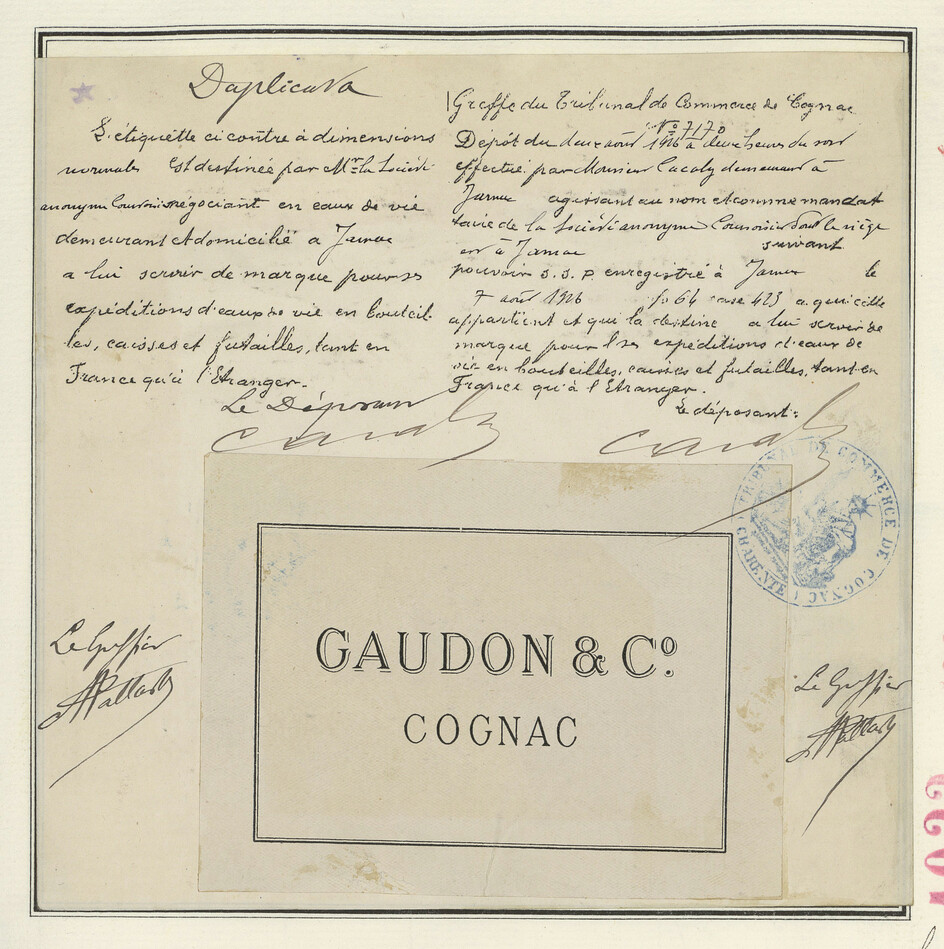 Duplicata
L'étiquette ci contre à dimensions
normales est destinée par Mr la Société
anonyme Courvoisier négociant en eaux de vie
demeurant et domicilié à Jarnac
a lui servir de marque pour ses
expéditions d'eaux de vie en bouteil-
les, caisses et futailles, tant en
France qu'à l'Etranger.
Le Déposant
Greffe du Tribunal de Commerce de Cognac
No 7170
Dépôt du deux août 1926 à deux heures du soir
effectué par Monsieur demeurant à
Jarnac agissant au nom et comme mandat
taire de la Société anonyme Courvoisier dont le siège
est à Jarnac suivant
pouvoir S.S.P. enregistré à Jarnac le
7 août 1926 fo 64 case 423 a qui cette
appartient et qui la destine a lui servir de
marque pour l ses expéditions d'eaux de
vie en bouteilles, caisses et futailles, tant en
France qu'à l'Etranger.
Le déposant:
TRIBUNAL DE COMMERCE DE COGNAC
CHARENTE
GAUDON & Co.
COGNAC
Le Greffier
Le Greffier